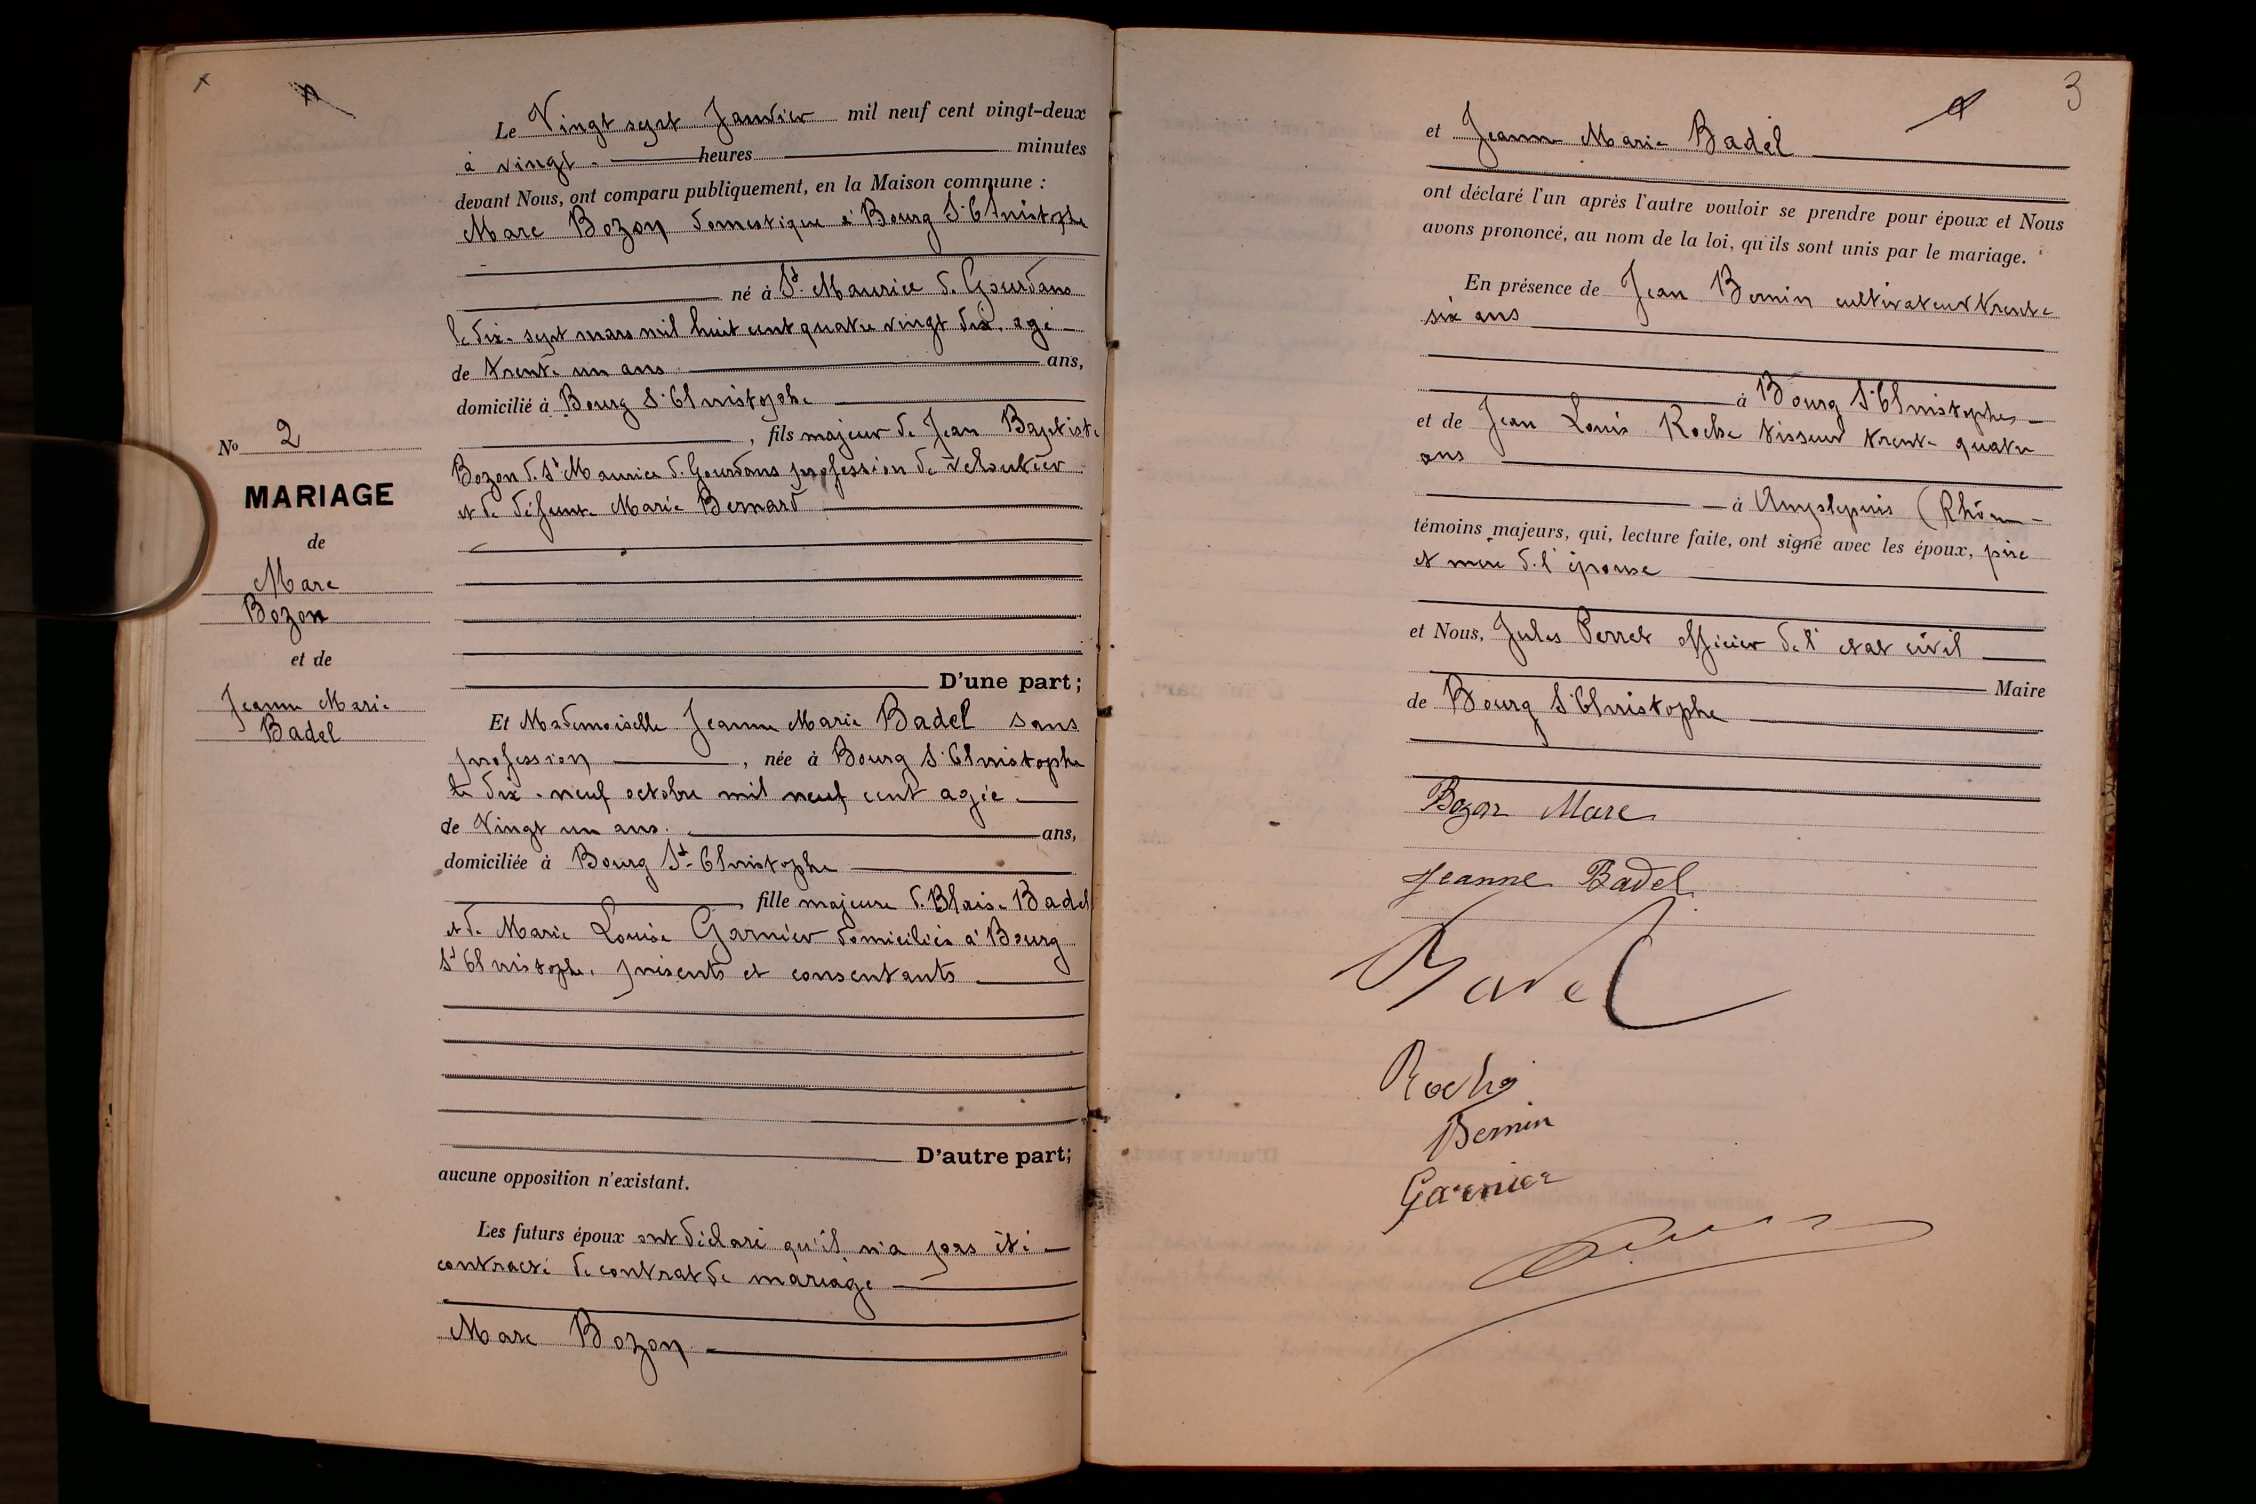 Le Vingt sept Janvier mil neuf cent vingt-deux
à vingt heures minutes
devant Nous, ont comparu publiquement, en la Maison commune :
Marc Bozon domestique à Bourg St Christophe
né à St. Maurice de Gourdans
le dix-sept mars mil huit cent quatre vingt dix, agé
de trente un ans ans,
domicilié à Bourg St Christophe
, fils majeur de Jean Baptiste
Bozon de St Maurice de Gourdans profession de veloutier
et de défunte Marie Bernard
No 2
MARIAGE
de
Marc
Bozon
et de
Jeanne Marie
Badel
D'une part ;
Et Mademoiselle Jeanne Marie Badel sans
profession , née à Bourg St Christophe
le dix-neuf octobre mil neuf cent agée
de Vingt un ans. ans,
domiciliée à Bourg St-Christophe
fille majeure de Blaise Badel
et de Marie Louise Garnier domiciliés à Bourg
St Christophe, présents et consentants
D'autre part;
aucune opposition n'existant.
Les futurs époux ont déclaré qu'il n'a pas été
contracté de contrat de mariage
Marc Bozon
3
et Jeanne Marie Badel
ont déclaré l'un après l'autre vouloir se prendre pour époux et Nous
avons prononcé, au nom de la loi, qu'ils sont unis par le mariage.
En présence de Jean Bernin cultivateur trente
six ans
à Bourg St Christophe
et de Jean Louis Roche tisseur trente quatre
ans
à Amplepuis (Rhône
témoins majeurs, qui, lecture faite, ont signé avec les époux, père
et mère de l'épouse
et Nous, Jules Perret officier de l'etat civil
Maire
de Bourg St Christophe
Bozon Marc
Jeanne Badel
Badel
Roche
Bernin
Garnier